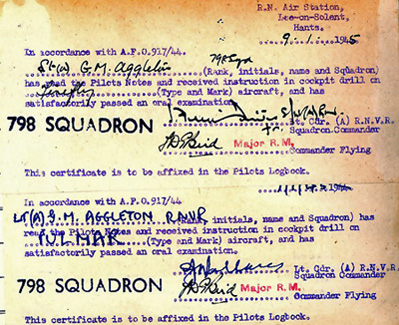 R.N. Air Station,
Lee-on-Solent,
Hants.
9. 1. 1945
In accordance with A.F.O.917/44.
G.M. Aggleton 798 Sqd
(Rank, initials, name and Squadron)
has read the Pilots Notes and received instruction in cockpit drill on
Firefly (Type and Mark) aircraft, and has
satisfactorily passed an oral examination.
Lt. Cdr. (A) R.N.V.R.
798 SQUADRON Squadron Commander
Major R.M.
Commander Flying
This certificate is to be affixed in the Pilots Logbook.
In accordance with A.F.O.917/44
LT(A) G.M. AGGLETON RNVR (Rank, initials, name and Squadron) has
read the Pilots Notes and received instruction in cockpit drill on
FULMAR (Type and Mark) aircraft, and has
satisfactorily passed an oral examination.
Lt. Cdr. (A) R.N.V.R.
Squadron Commander
798 SQUADRON Major R.M.
Commander Flying
This certificate is to be affixed in the Pilots Logbook.